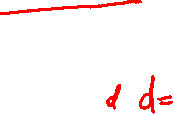 d d=